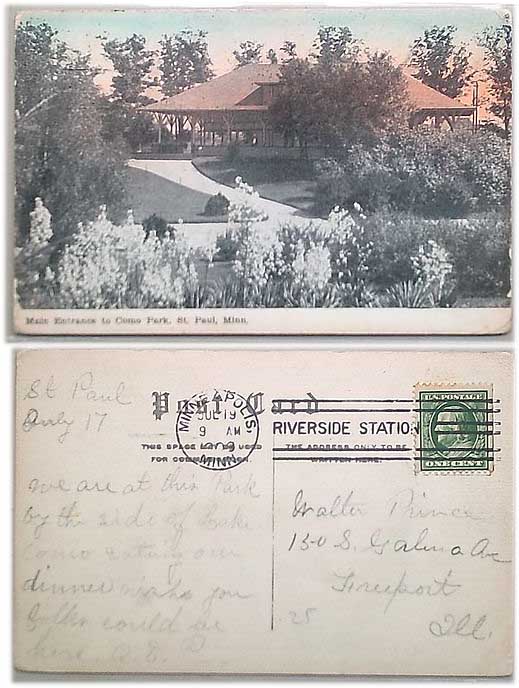 Main Entrance to Como Park, St. Paul, Minn.
St Paul
July 17
Post Card
THIS SPACE MAY BE USED
FOR
MINNEAPOLIS
JUL 19
9 AM
1909
MINN.
RIVERSIDE STATION
THE ADDRESS ONLY TO BE
WRITTEN HERE.
U.S. POSTAGE
ONE CENT
we are at this Park
by the side of Lake
Como eating our
dinner wish you
folks could be
here
Walter Prince
150 S. Galena Av
Freeport
Ill.
25